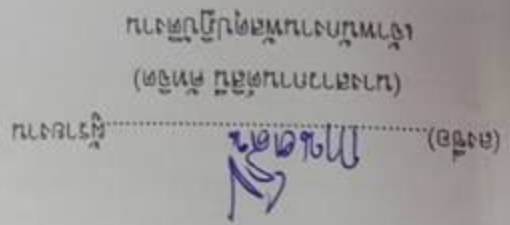 (ลงชื่อ)........................ผู้รายงาน
(นางสาวกานต์สินี
เจ้าพนักงานพัสดุปฏิบัติงาน